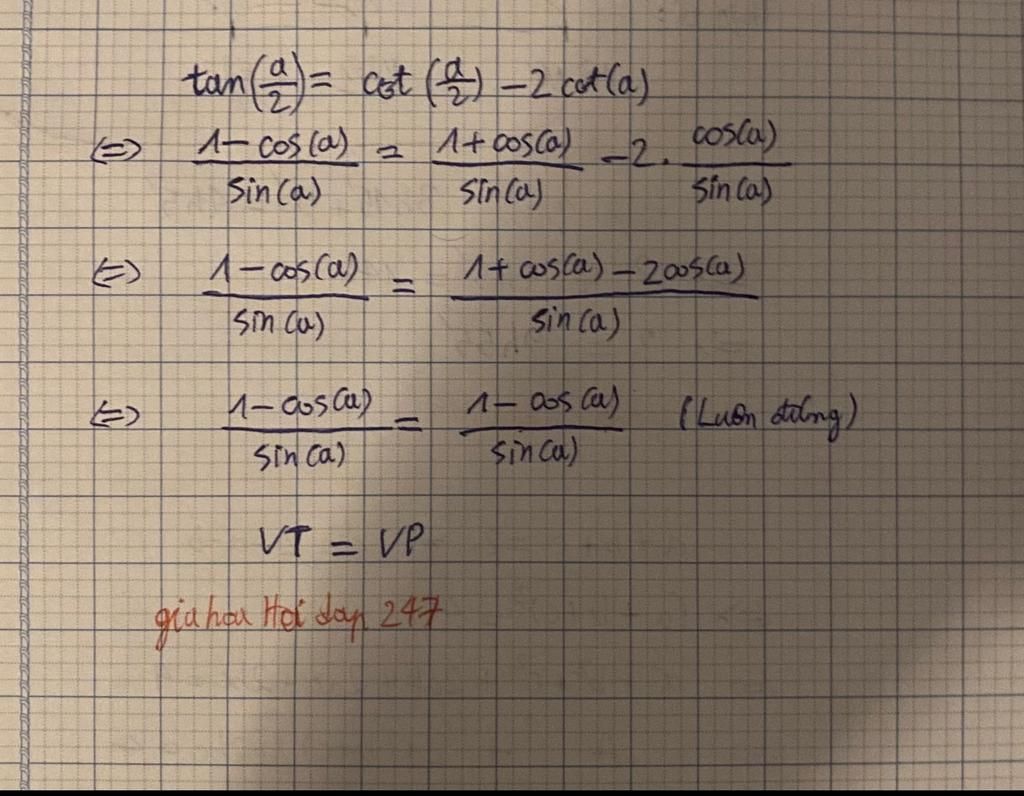 tan(a/2) = cot(a/2) - 2 cot(a)
<=> (1 - cos(a))/sin(a) = (1 + cos(a))/sin(a) - 2 . cos(a)/sin(a)
<=> (1 - cos(a))/sin(a) = (1 + cos(a) - 2cos(a))/sin(a)
<=> (1 - cos(a))/sin(a) = (1 - cos(a))/sin(a) (Luôn đúng)
VT = VP
giahoa Hoi dap 247